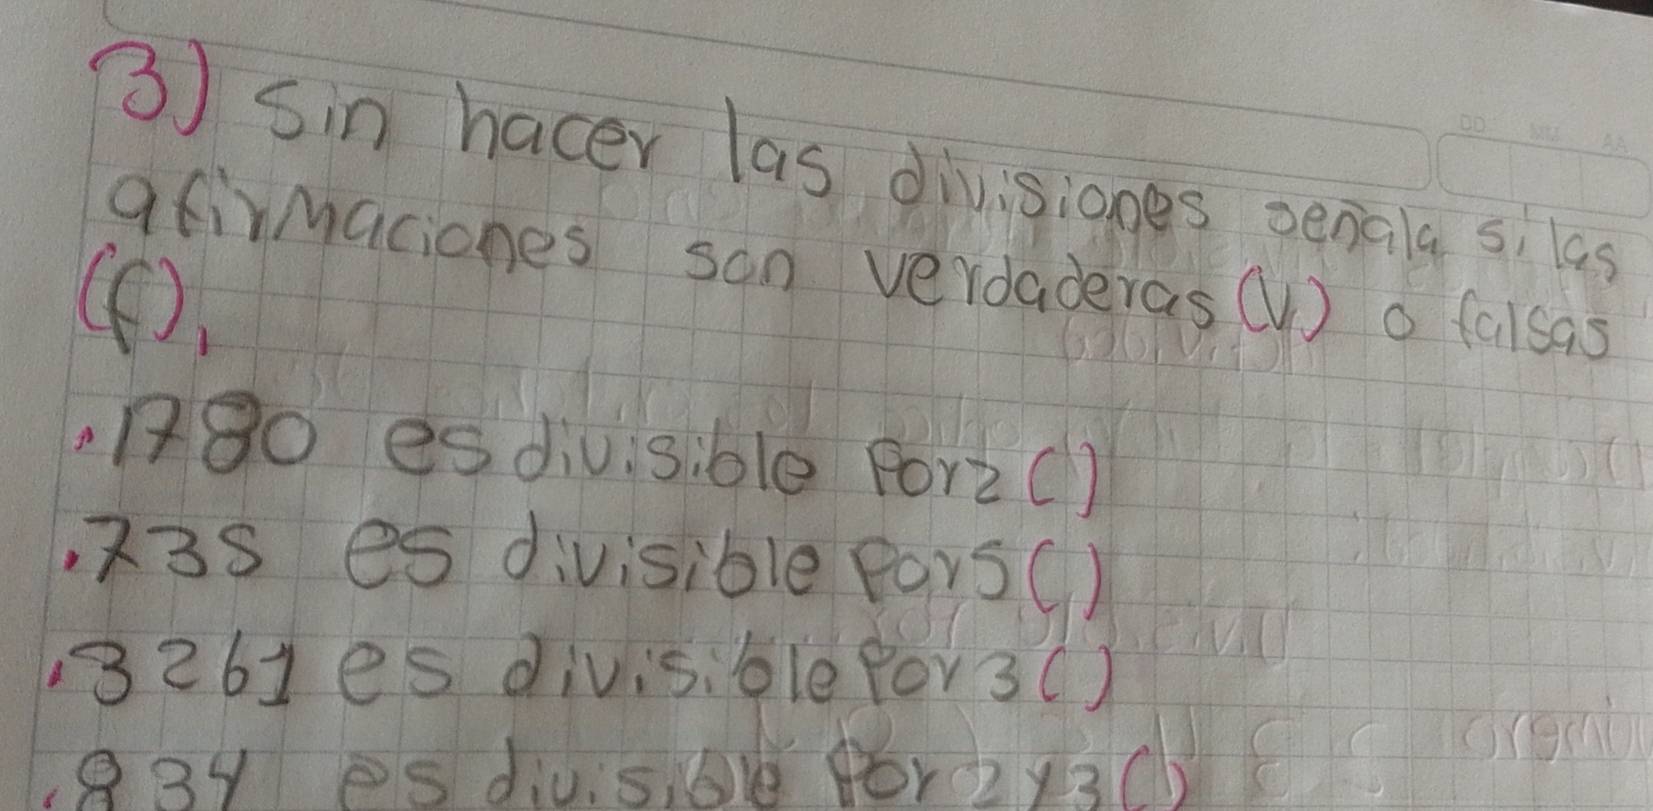 3) Sin hacer las divisiones señala si las
afirmaciones son verdaderas (V) o falsas
(f).
.1780 es divisible por 2 ()
.735 es divisible por 5 ()
.3261 es divisible por 3 ()
.834 es divisible por 2 y 3 ()
DD MM AA